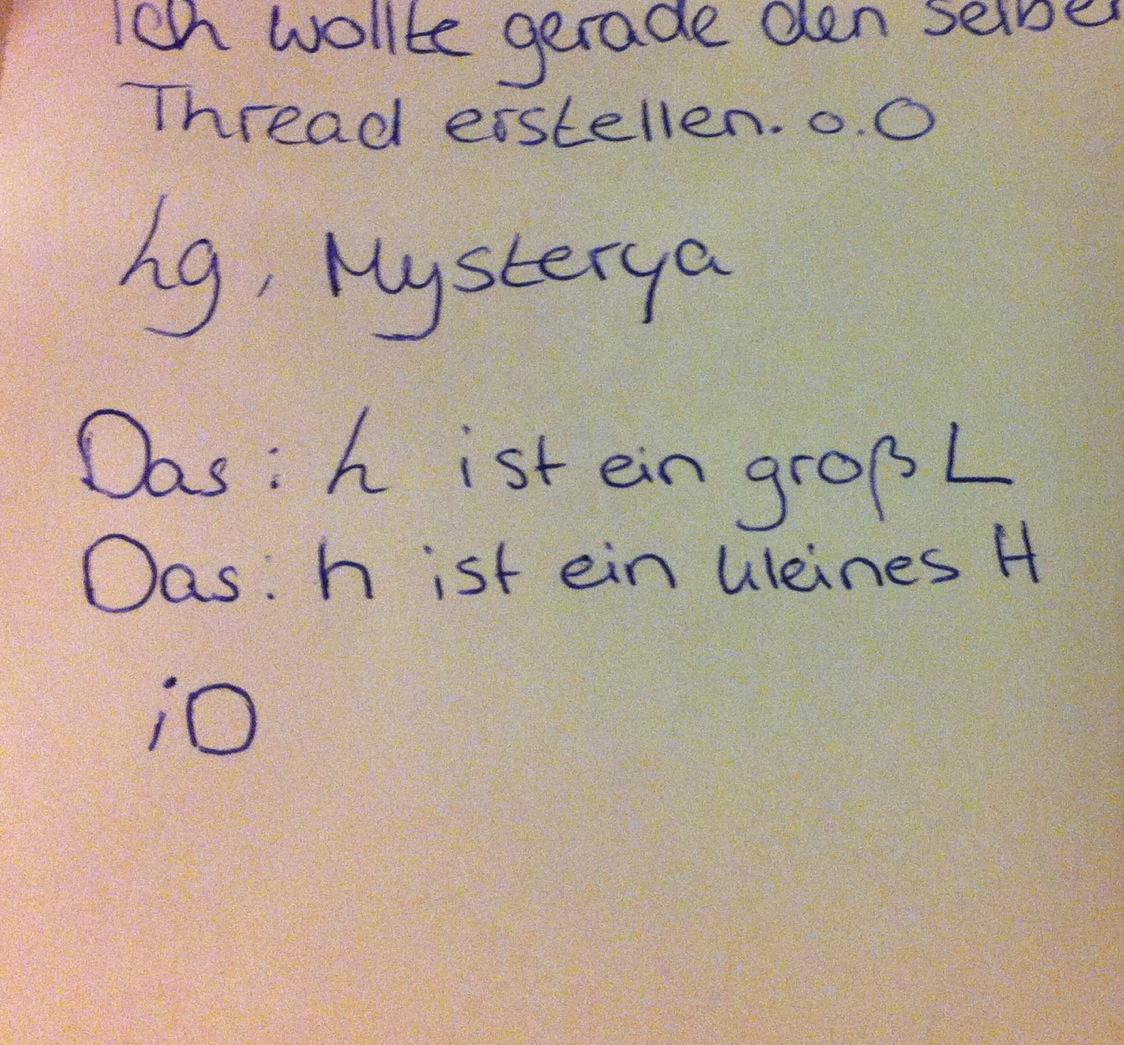 Ich wollte gerade den selbe
Thread erstellen. o.O
Lg, Mysterya
Das: L ist ein groß L
Das: h ist ein kleines H
iO